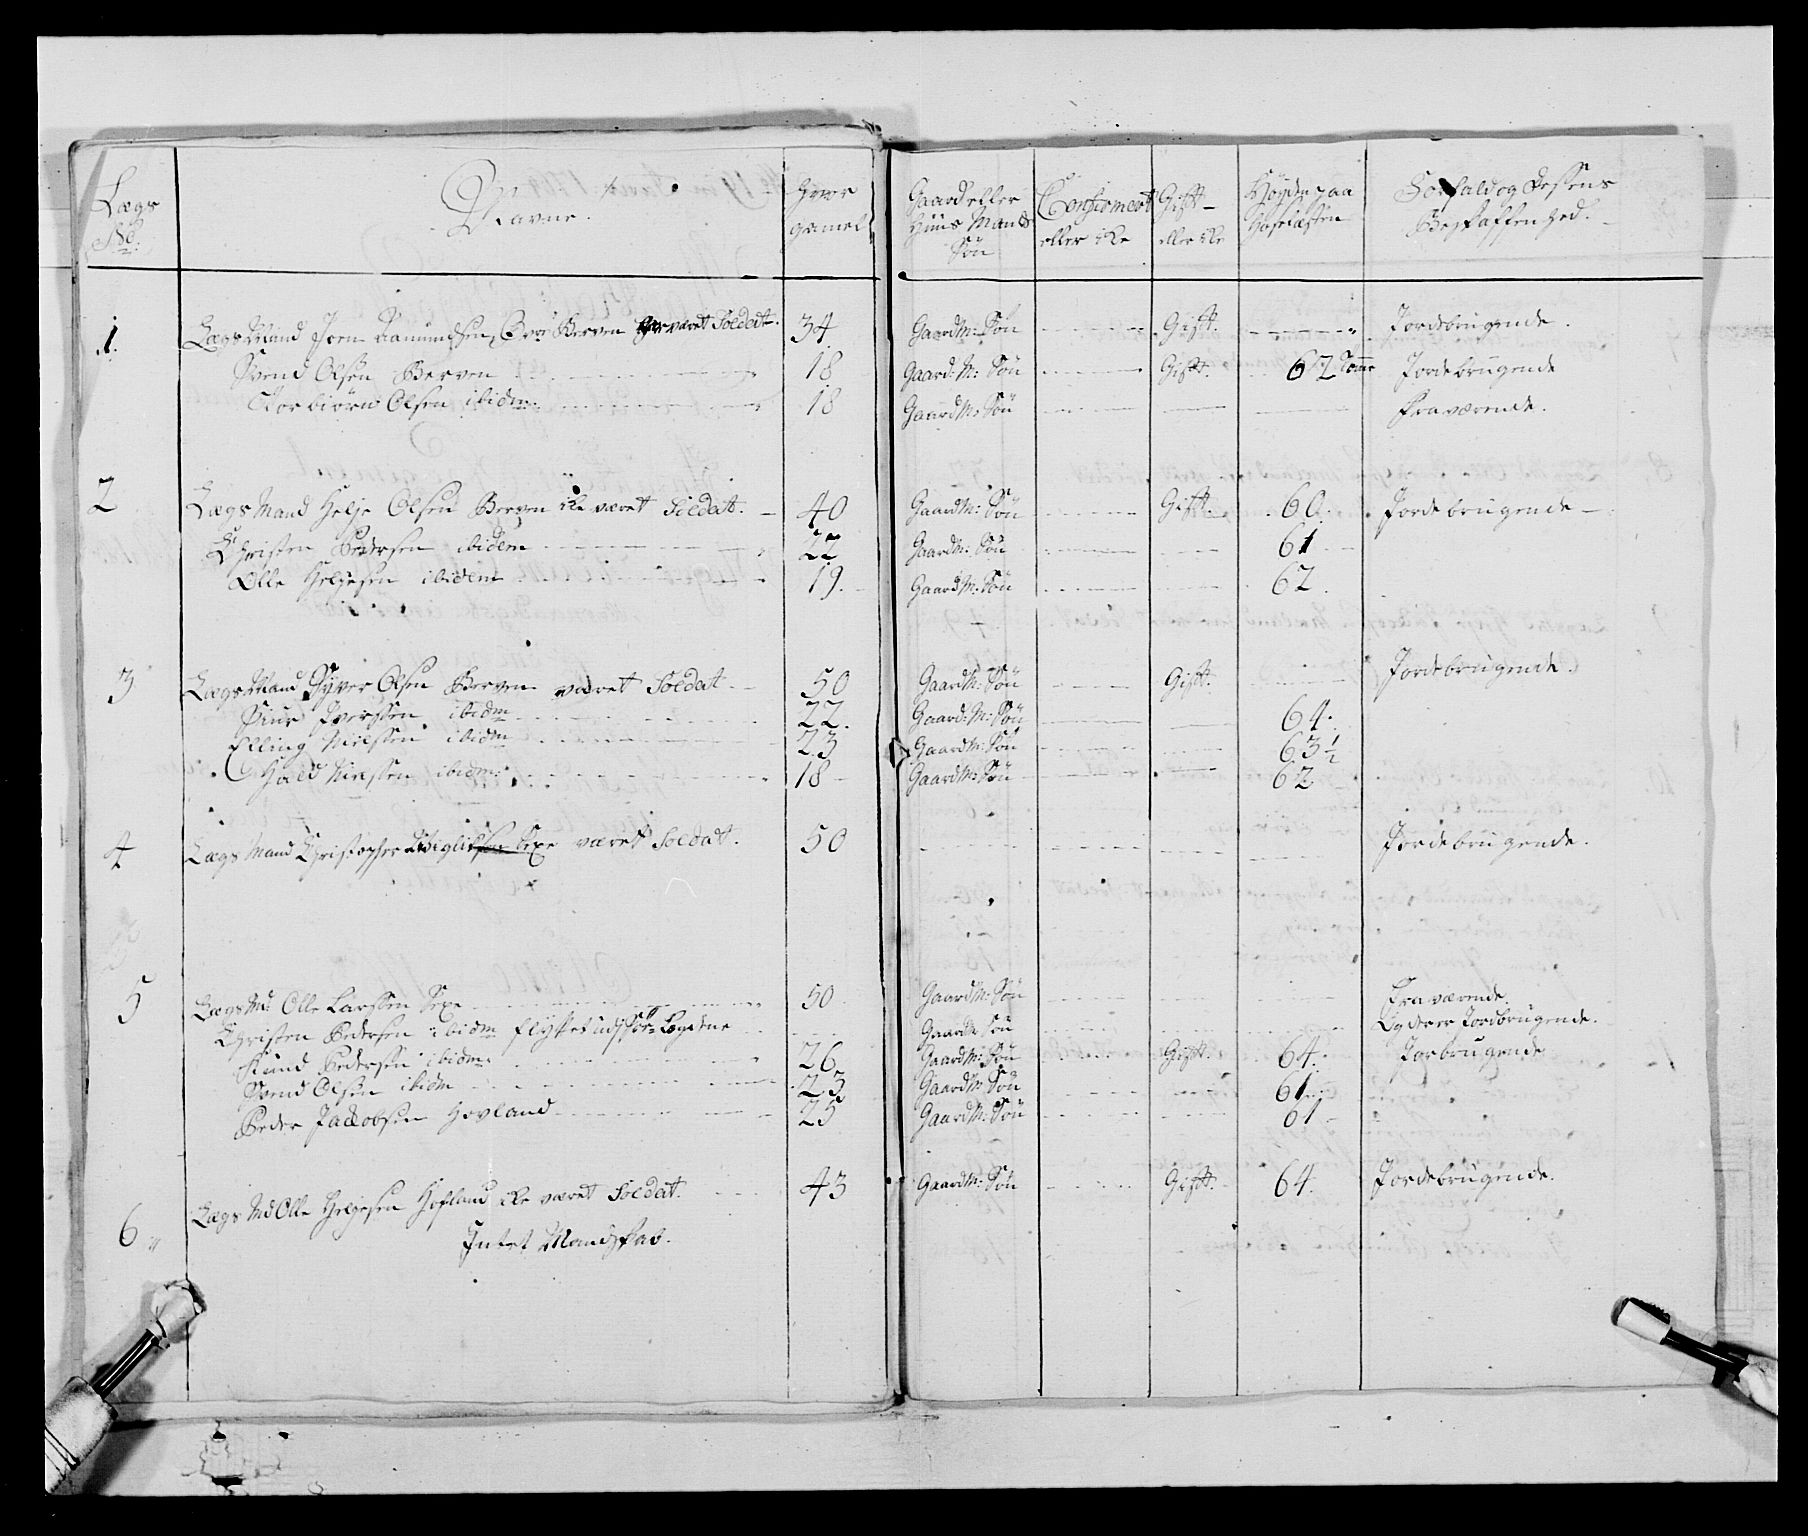 Lægs No. Navne. Hvor gamel Gaard eller Huus Mands Søn Confirmert eller icke Gift eller icke Høyden paa Hosesæsten Forfald og dessens Beskaffenhed.
1. Lægs Mand Joen Aamundsen Berven været Soldat. 34. Gaardm: Søn Gift. Jordebrugende.
Svend Olsen Berven 18 Gaard: M: Søn Gift. 62 Tomr Jordebrugende
Torbiørn Olsen ibidm 18 Gaardm: Søn Fraværende.
2 Lægs Mand Helje Olsen Berven icke været Soldat. 40 Gaardm: Søn Gift. 60. Jordebrugende
Christen Pedersen ibidem 22 Gaardm: Søn 61
Olle Heljesen ibidem 19. Gaardm: Søn 62.
3 Lægs Mand Syver Olsen Berven været Soldat 50 Gaardm: Søn Gift. Jordebrugende.
Siur Iverssen ibidm 22. Gaard: M: Søn 64.
Elling Nielssen ibidm 23 Gaardm: Søn 63½
Nielssen ibidm: 18 Gaardm: Søn 62
4 Lægs Mand Christopher Sexe været Soldat. 50 Jordebrugende.
5 Lægs Md: Olle Larssen Sexe 50 Gaardm: Søn Fraværende.
Christen Pedersen ibidm Gaardm Søn Jordbrugende.
Pedersen ibidm: 26 Gaardm: Søn Gift. 64. Jorbrugende
Svend Olsen ibidm 25 Gaardm: Søn 61
Peder Jackobsen Hovland 25 Gaardm: Søn 61
6 Lægs Md Olle Heljesen Hofland icke været Soldat. 43 Gaardm: Søn Gift. 64. Jordebrugende.
Intet Mandskab.